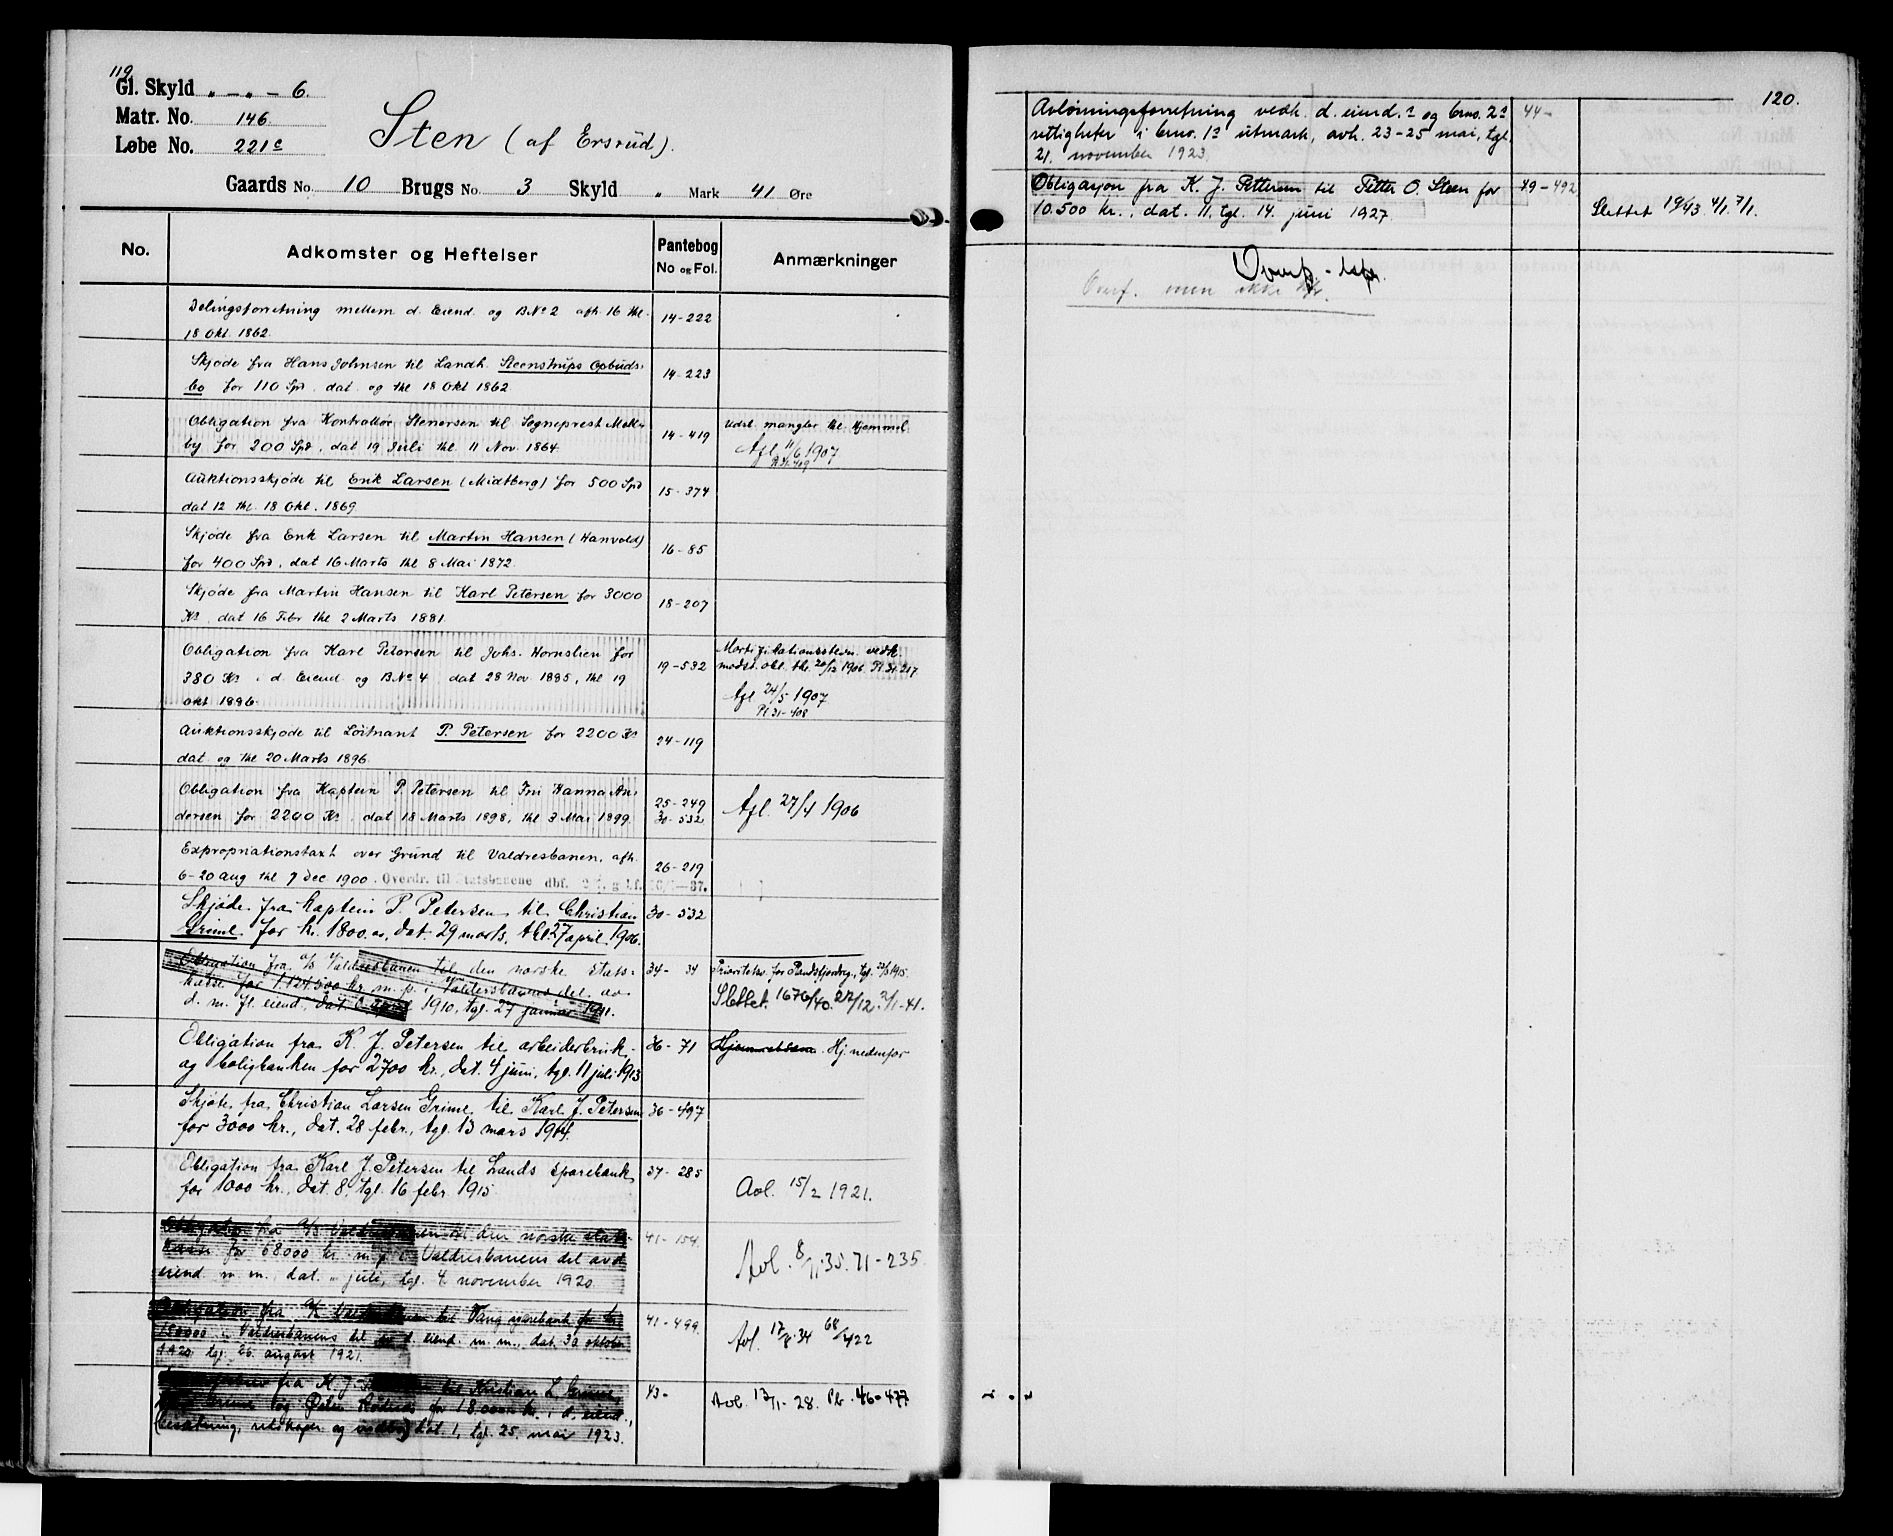 119
Gl. Skyld „ – „ – 6.
Matr. No. 146
Løbe No. 221c
Sten (af Ersrud).
Gaards No. 10 Brugs No. 3 Skyld „ Mark 41 Øre
No. Adkomster og Heftelser Pantebog No og Fol. Anmærkninger
Delingsforretning mellem d. Eiend. og B.No 2 afh. 16 thl. 14-222
18 Okt. 1862.
Skjøde fra Hans Johnsen til Landh. Steenstrups Opbuds- 14-223
bo for 110 Spd. dat. og thl 18 Okt 1862
Obligation fra Kontrollør Stenersen til Sogneprest Mell- 14-419 Udst. mangler thl. Hjemmel.
by for 200 Spd, dat 19 Juli thl. 11 Nov. 1864. Afl. 11/6 1907
Pl 31. 409
Auktionsskjøde til Erik Larsen (Midtberg) for 500 Spd 15-374
dat 12 thl. 18 Okt. 1869
Skjøde fra Erik Larsen til Martin Hansen (Hanvold) 16-85
for 400 Spd, dat 16 Marts thl 8 Mai 1872.
Skjøde fra Martin Hansen til Karl Petersen for 3000 18-207
Kr. dat 16 Febr thl 2 Marts 1881.
Obligation fra Karl Petersen til Johs. Hornslien for 19-532 Mortifikationsstevn. vedk.
380 Kr. i d. Eiend og B.No 4 dat 28 Nov. 1885, thl 19 modst. obl. thl. 20/12 1906 Pl 31. 217
Okt 1886. Afl 24/5 1907
Pl 31-408
Auktionsskjøde til Løitnant P. Petersen for 2200 Kr 24-119
dat. og thl 20 Marts 1896.
Obligation fra Kaptein P. Petersen til Fru Hanna An- 25-249
dersen for 2200 Kr. dat 18 Marts 1898, thl 3 Mai 1899. 30-532 Afl. 27/4 1906
Expropriationstaxt over Grund til Valdresbanen, afh. 26-219
6-20 Aug thl 7 Dec 1900. Overdr. til Statsbanene dbf.
Skjøde fra kaptein P. Petersen til Christian 30-532
Grime for kr. 1800.00, dat. 29 marts, thl. 27 april 1906.
Obligation fra A/S Valdresbanen til den norske stats- 34-34 Prioritetsv. for
kasse for 1.124.500 kr. m. p. i Valdersbanens del av Slettet. 1676/40. 27/12. 2/1-41.
d. m. fl. eiend., dat. april 1910, tgl. 27 januar 1911.
Obligation fra K. J. Petersen til arbeiderbruk- 36-71 Hjemmelsam. Hj. nedenfor
og boligbanken for 2700 kr., dat. 4 juni, tgl. 11 juli 1913
Skjøte fra Christian Larsen Grime til Karl J. Petersen 36-497
for 3000 kr., dat. 28 febr., tgl. 13 mars 1914.
Obligation fra Karl J. Petersen til Lands Sparebank 37-285
for 1000 kr., dat. 8, tgl. 16 febr. 1915 Avl. 15/2 1921.
Obligation fra A/S Valdresbanen til den norske stats- 41-154
kasse for 68000 kr. m. p. i Valdresbanens del av d. Avl. 8/11.35. 71-235.
eiend. m. m., dat. „ juli, tgl. 4 november 1920.
Obligation fra A/S Valdresbanen til Vang sparebank for kr. 41-499
180000 i Valdresbanens del av d. eiend. m. m., dat. 30 oktober Avl. 17/8.34 68/422
1920 tgl. 26. august 1921.
fra K. J. til Kristian L. Grime, 43- Avl. 13/1-28. Pb. 46-477
og Peter for 18.000 kr. i d. eiend.,
(besætning, redskaper og ) dat. 1, tgl. 25. mai 1923.
120.
Avløsningsforretning vedk. d. eiend.s og bno. 2s 44-
rettigheter i bno. 1s utmark, avh. 23-25 mai, tgl.
21. november 1923.
Obligasjon fra K. J. Pettersen til Petter O. Steen for 49-492
10.500 kr., dat. 11, tgl. 14. juni 1927. Slettet 19/43 4/1. 7/1.
Overf.
Overf. men ikke